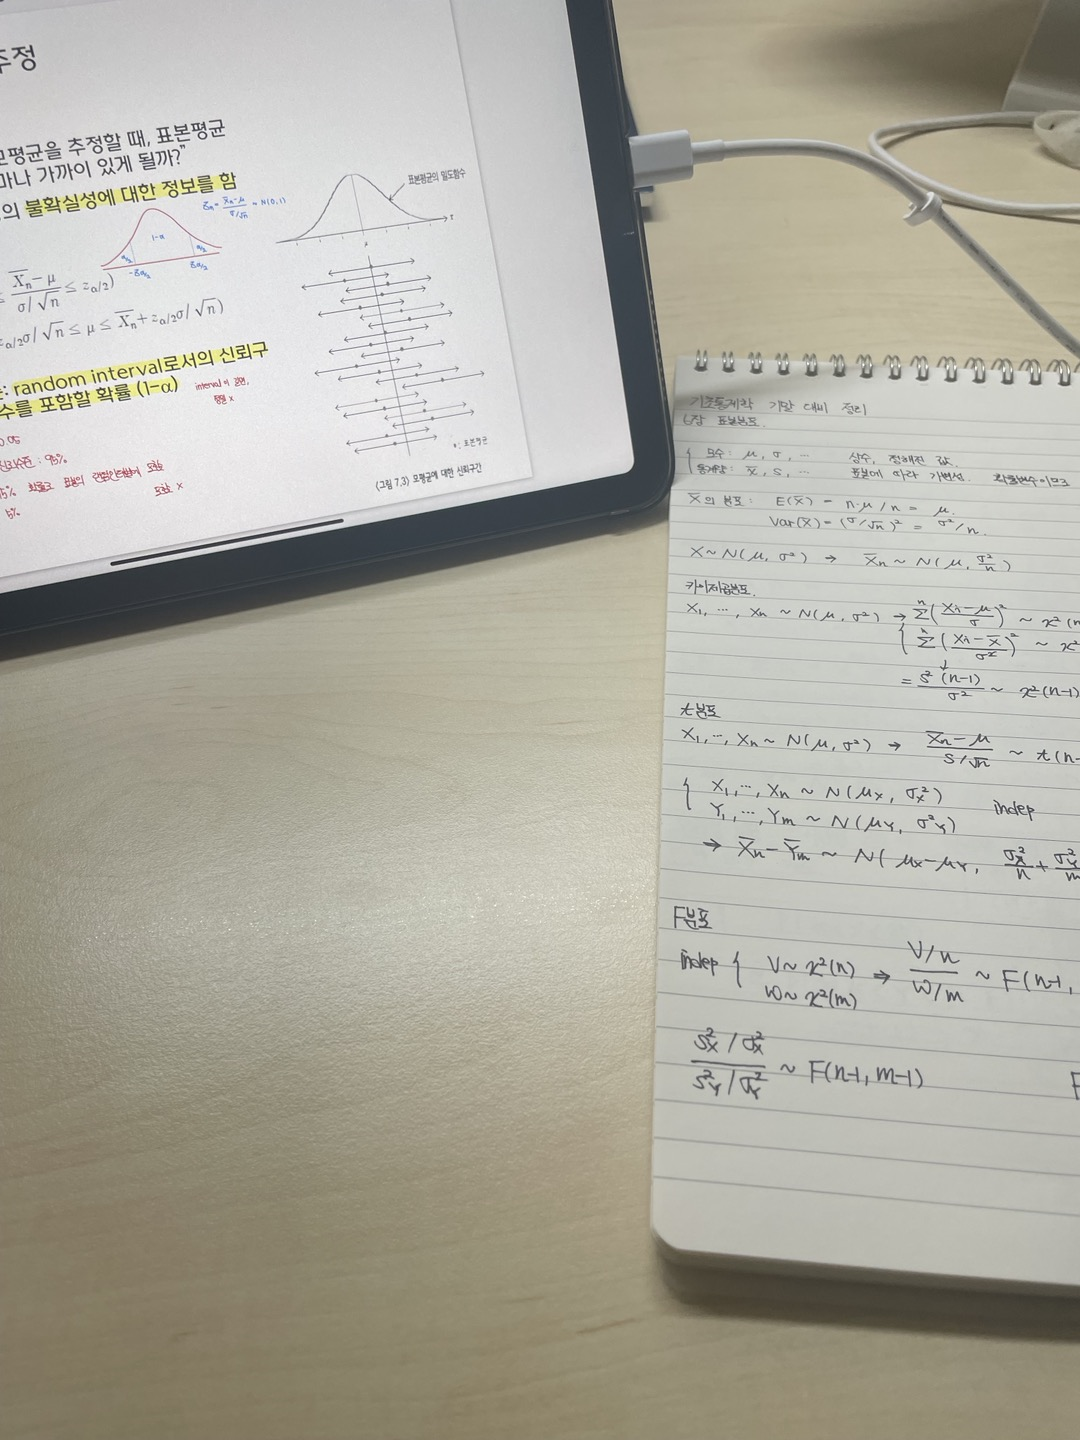 추정
모평균을 추정할 때, 표본평균
마나 가까이 있게 될까?"
의 불확실성에 대한 정보를 함
Zn = X̄n-μ / σ/√n ~ N(0,1)
표본평균의 밀도함수
1-α
α/2 α/2
-Zα/2 Zα/2
μ
≤ X̄n - μ / σ/√n ≤ zα/2)
zα/2σ/√n ≤ μ ≤ X̄n + zα/2σ/√n)
: random interval로서의 신뢰구
수를 포함할 확률 (1-α)
interval
x
0.05
신뢰수준 : 95%
95% 확률로
포함 x
5%
• : 표본평균
(그림 7.3) 모평균에 대한 신뢰구간
기초통계학 기말 대비 정리
6장 표본분포.
모수: μ, σ, … 상수, 정해진 값.
통계량: X̄, S, … 표본에 따라 가변성. 확률변수이므로
X̄의 분포: E(X̄) = n·μ/n = μ.
Var(X̄) = (σ/√n)² = σ²/n.
X~N(μ, σ²) → X̄n ~ N(μ, σ²/n)
카이제곱분포.
X1, …, Xn ~ N(μ, σ²) → Σⁿ(Xi-μ / σ)² ~ χ²(n
Σⁿ(Xi-X̄ / σ²)² ~ χ²
↓
= S²(n-1) / σ² ~ χ²(n-1)
t분포
X1, …, Xn ~ N(μ, σ²) → X̄n-μ / S/√n ~ t(n-
X1, …, Xn ~ N(μX, σX²) indep
Y1, …, Ym ~ N(μY, σ²Y)
→ X̄n-Ȳm ~ N(μX-μY, σX²/n + σY²/m
F분포
indep { V~χ²(n) ⇒ V/n / W/m ~ F(n-1,
W~χ²(m)
S²X/σ²X / S²Y/σ²Y ~ F(n-1, m-1) F